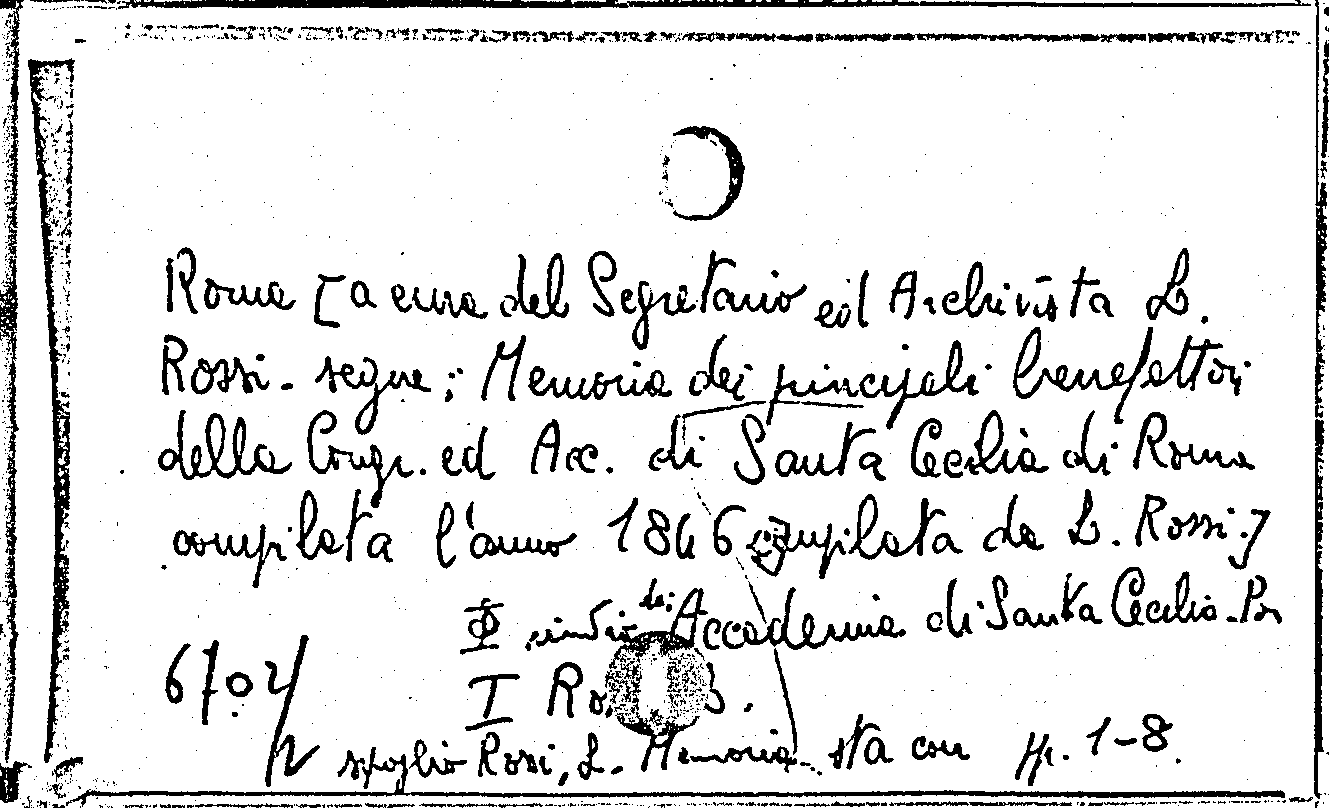 Roma [a cura del Segretario ed Archivista L.
Rossi - segue; Memoria dei principali benefattori
della Congr. ed Acc. di Santa Cecilia di Roma
compilata l'anno 1846 compilata da L. Rossi.]
Φ dei Accademia di Santa Cecilia -
I Ro B.
6704/
spoglio Rossi, L. - Memoria - sta con pp. 1-8.